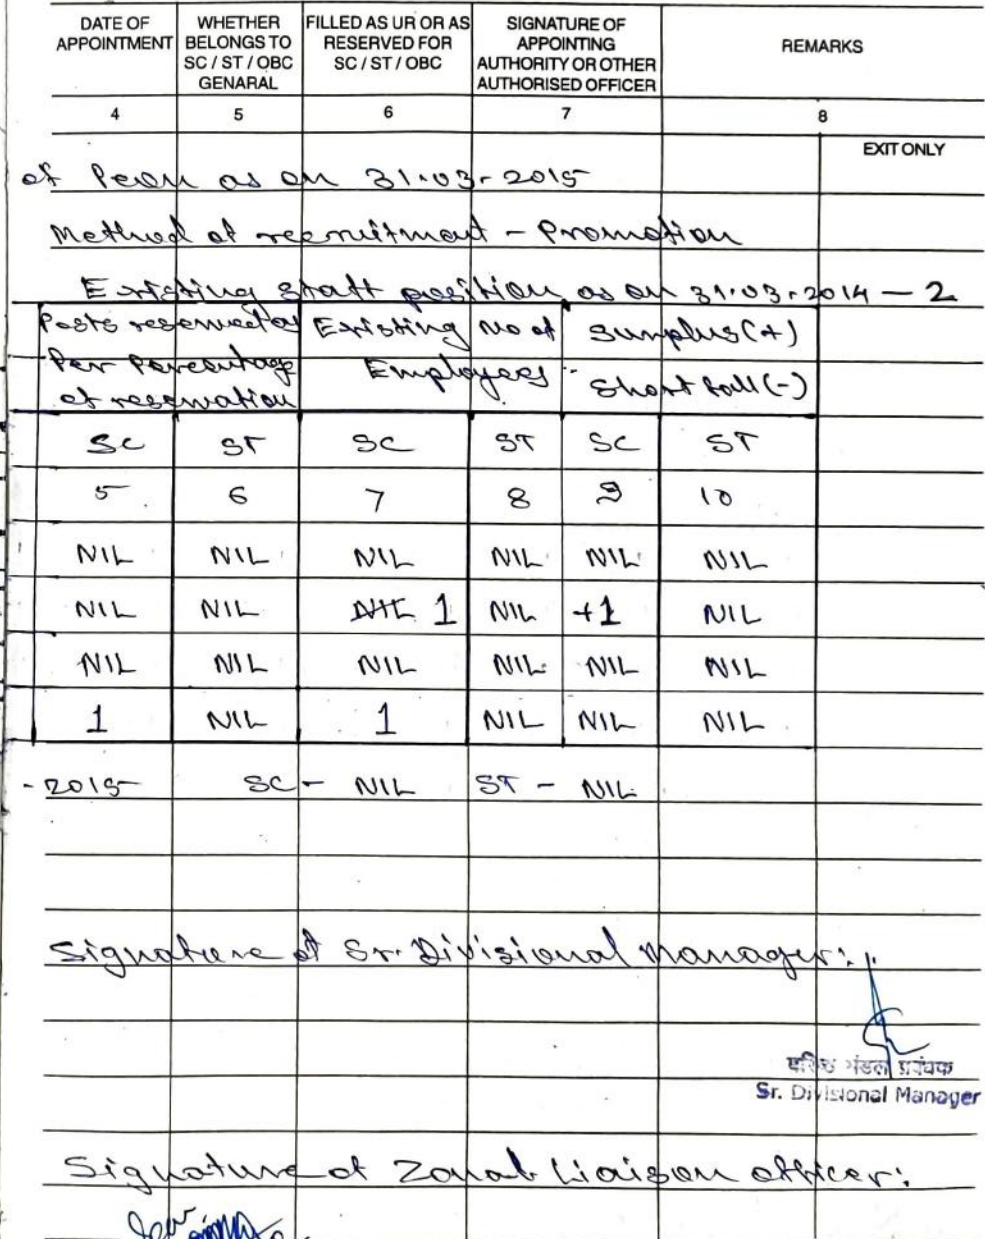 DATE OF APPOINTMENT WHETHER BELONGS TO SC / ST / OBC GENARAL FILLED AS UR OR AS RESERVED FOR SC / ST / OBC SIGNATURE OF APPOINTING AUTHORITY OR OTHER AUTHORISED OFFICER REMARKS
4 5 6 7 8
EXIT ONLY
of Peon as on 31.03.2015
Method of recruitment - Promotion
Existing staff position as on 31.03.2014 - 2
Posts reserved as Existing No of Surplus (+)
Per Percentage Employees Short fall (-)
of reservation
SC ST SC ST SC ST
5 6 7 8 9 10
NIL NIL NIL NIL NIL NIL
NIL NIL NIL 1 NIL +1 NIL
NIL NIL NIL NIL NIL NIL
1 NIL 1 NIL NIL NIL
-2015 SC - NIL ST - NIL
Signature of Sr. Divisional Manager:
वरिष्ठ मंडल प्रबंधक
Sr. Divisional Manager
Signature of Zonal Liaison officer: